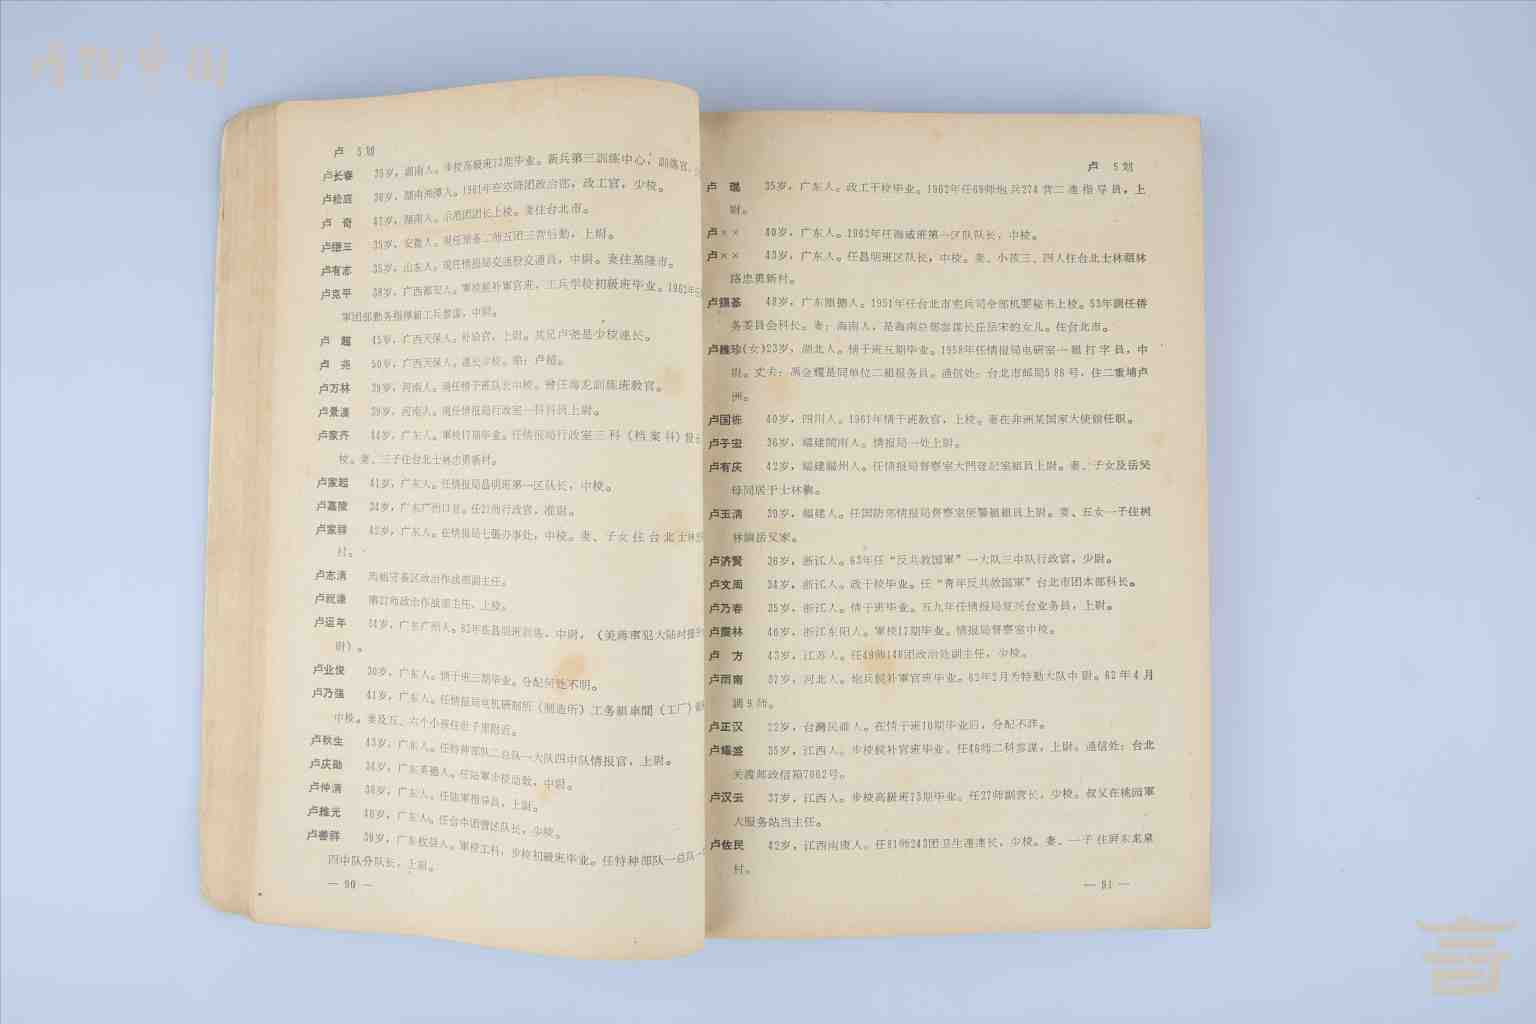 博物中国
卢 5划
卢长春 39岁，湖南人。步校高级班73期毕业。新兵第三訓练中心，訓练官，
卢松庭 36岁，湖南湘潭人。1961年在京隆团政治部，政工官，少校。
卢 奇 47岁，湖南人。示范团团长上校。妻住台北市。
卢继三 35岁，安徽人。現任預备二师五团三营后勤，上尉。
卢有志 35岁，山东人。現任情报局交通股交通員，中尉。妻住基隆市。
卢克平 38岁，广西都安人。軍校候补軍官班，工兵学校初級班毕业。1962年
軍团部勤务指揮組工兵参謀，中尉。
卢 超 45岁，广西天保人。补給官，上尉。其兄卢尧是少校連长。
卢 尧 50岁，广西天保人。連长少校。弟：卢超。
卢万林 39岁，河南人。現任情干班队长中校。曾任海龙訓练班教官。
卢景 39岁，河南人。現任情报局行政室一科科員上尉。
卢家齐 44岁，广东人。軍校17期毕业。任情报局行政室三科（档案科）
校。妻、三子住台北士林忠勇新村。
卢家超 41岁，广东人。任情报局昌明班第一区队长，中校。
卢嘉陵 34岁，广东广州口音。任27师行政官，准尉。
卢家 42岁，广东人。在情报局七張办事处，中校。妻、子女住台北士林
村。
卢志清 馬祖守备区政治作战部副主任。
卢祝謙 南27师政治作战部主任，上校。
卢运年 34岁，广东广州人。62年在昌明班訓练，中尉，（美蔣軍犯大陆时
尉）。
卢业俊 30岁，广东人。情干班三期毕业。分配何处不明。
卢乃强 41岁，广东人。任情报局电机研制所（制造所）工务組車間（工厂）
中校。妻及五、六个小孩住肚子里附近。
卢秋生 43岁，广东人。任特种部队二总队一大队四中队情报官，上尉。
卢庆勛 34岁，广东英德人。任陆軍步校助教，中尉。
卢仲清 38岁，广东人。任陆軍指导員，上尉。
卢雅光 40岁，广东人。任台中团管区队长，少校。
卢善祥 39岁，广东蚊县人。軍校工科，步校初級班毕业。任特种部队一总队一
四中队分队长，上尉。
— 90 —
卢 5划
卢 琨 35岁，广东人。政工干校毕业。1962年任69师炮兵274营二連指导員，上
尉。
卢×× 40岁，广东人。1962年任海威班第一区队队长，中校。
卢×× 43岁，广东人。任昌明班区队长，中校。妻、小孩三、四人住台北士林福林
路忠勇新村。
卢錫基 48岁，广东順德人。1951年任台北市宪兵司令部机要秘书上校。53年調任侨
务委員会科长。妻：海南人，是海南总部参謀长丘岳宋的女儿。住台北市。
卢維珍(女)23岁，湖北人。情干班五期毕业。1958年任情报局电研室一組打字員，中
尉。丈夫：馮金耀是同单位二組报务員。通信处：台北市邮局586号，住二重埔卢
洲。
卢国栋 40岁，四川人。1961年情干班教官，上校。妻在非洲某国家大使館任职。
卢子宏 36岁，福建閩南人。情报局一处上尉。
卢有庆 42岁，福建福州人。任情报局督察室大門登記室組員上尉。妻、子女及岳父
母同居于士林鎮。
卢玉清 39岁，福建人。任国防部情报局督察室便警組組員上尉。妻、五女一子住树
林鎮岳父家。
卢济賢 36岁，浙江人。63年任“反共救国軍”一大队三中队行政官，少尉。
卢文周 34岁，浙江人。政干校毕业。任“青年反共救国軍”台北市团本部科长。
卢乃春 35岁，浙江人。情干班毕业。五九年任情报局复兴台业务員，上尉。
卢震林 46岁，浙江东阳人。軍校17期毕业。情报局督察室中校。
卢 方 43岁，江苏人。任49师146团政治处副主任，少校。
卢雨南 37岁，河北人。炮兵候补軍官班毕业。62年2月为特勤大队中尉。62年4月
調9师。
卢正汉 22岁，台灣民雄人。在情干班10期毕业后，分配不詳。
卢耀盛 35岁，江西人。步校候补官班毕业。任46师二科参謀，上尉。通信处：台北
关渡邮政信箱7062号。
卢汉云 37岁，江西人。步校高級班73期毕业。任27师副营长，少校。叔父在桃园軍
人服务站当主任。
卢佐民 42岁，江西南康人。任81师243团卫生連連长，少校。妻、一子住屏东龙泉
村。
— 91 —